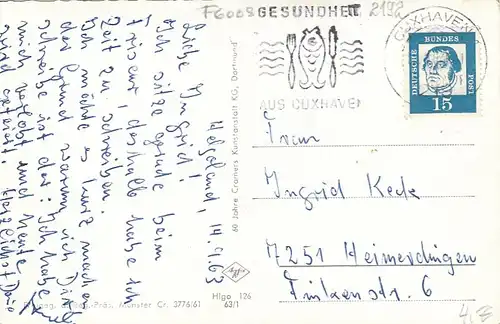 F6008
2192
GESUNDHEIT
AUS CUXHAVEN
CUXHAVEN
DEUTSCHE BUNDESPOST
15
Helgoland, 14.9.63
Liebe Ingrid!
Ich sitze gerade beim
Friseur, deshalb habe ich
Zeit zu schreiben.
Ich möchte es kurz machen
der Grund warum ich Dir
schreibe ist der: Ich habe
mich verlobt und heute
wird gefeiert. Herzlichst
60 Jahre Cramers Kunstanstalt KG, Dortmund
Münster Cr. 3776/61
Hlgo 126
63/1
Frau
Ingrid Keck
7251 Heimerdingen
Finkenstr. 6